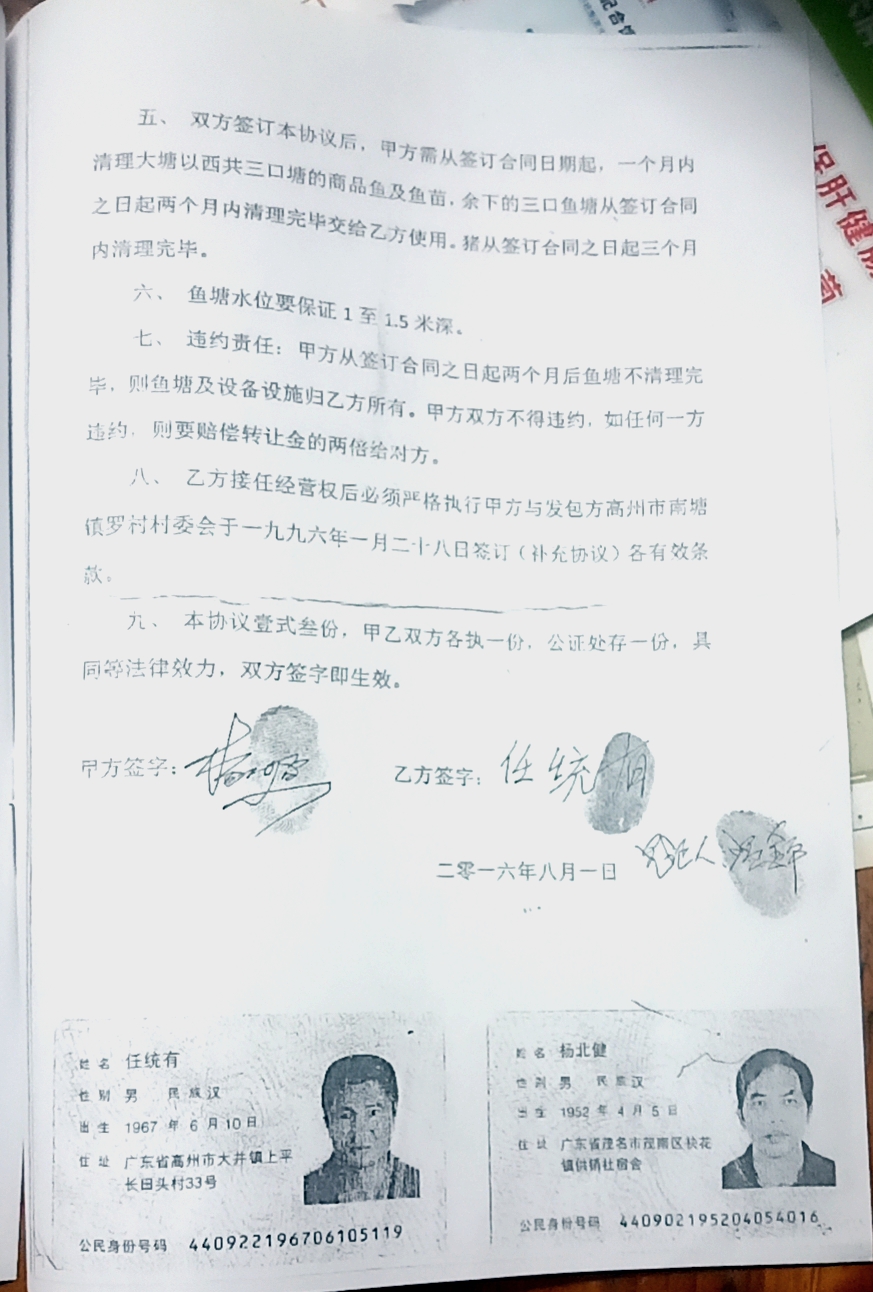 五、 双方签订本协议后，甲方需从签订合同日期起，一个月内
清理大塘以西共三口塘的商品鱼及鱼苗，余下的三口鱼塘从签订合同
之日起两个月内清理完毕交给乙方使用。猪从签订合同之日起三个月
内清理完毕。
六、 鱼塘水位要保证 1 至 1.5 米深。
七、 违约责任：甲方从签订合同之日起两个月后鱼塘不清理完
毕，则鱼塘及设备设施归乙方所有。甲方双方不得违约，如任何一方
违约，则要赔偿转让金的两倍给对方。
八、 乙方接任经营权后必须严格执行甲方与发包方高州市南塘
镇罗村村委会于一九九六年一月二十八日签订（补充协议）各有效条
款。
九、 本协议壹式叁份，甲乙双方各执一份，公证处存一份，具
同等法律效力，双方签字即生效。
甲方签字：
乙方签字：任统有
二零一六年八月一日
姓名 任统有
性别 男 民族汉
出生 1967 年 6 月 10 日
住址 广东省高州市大井镇上平
长田头村33号
公民身份号码 440922196706105119
姓名 杨北健
性别 男 民族汉
出生 1952 年 4 月 5 日
住址 广东省茂名市茂南区桃花
镇供销社宿舍
公民身份号码 440902195204054016
保肝健